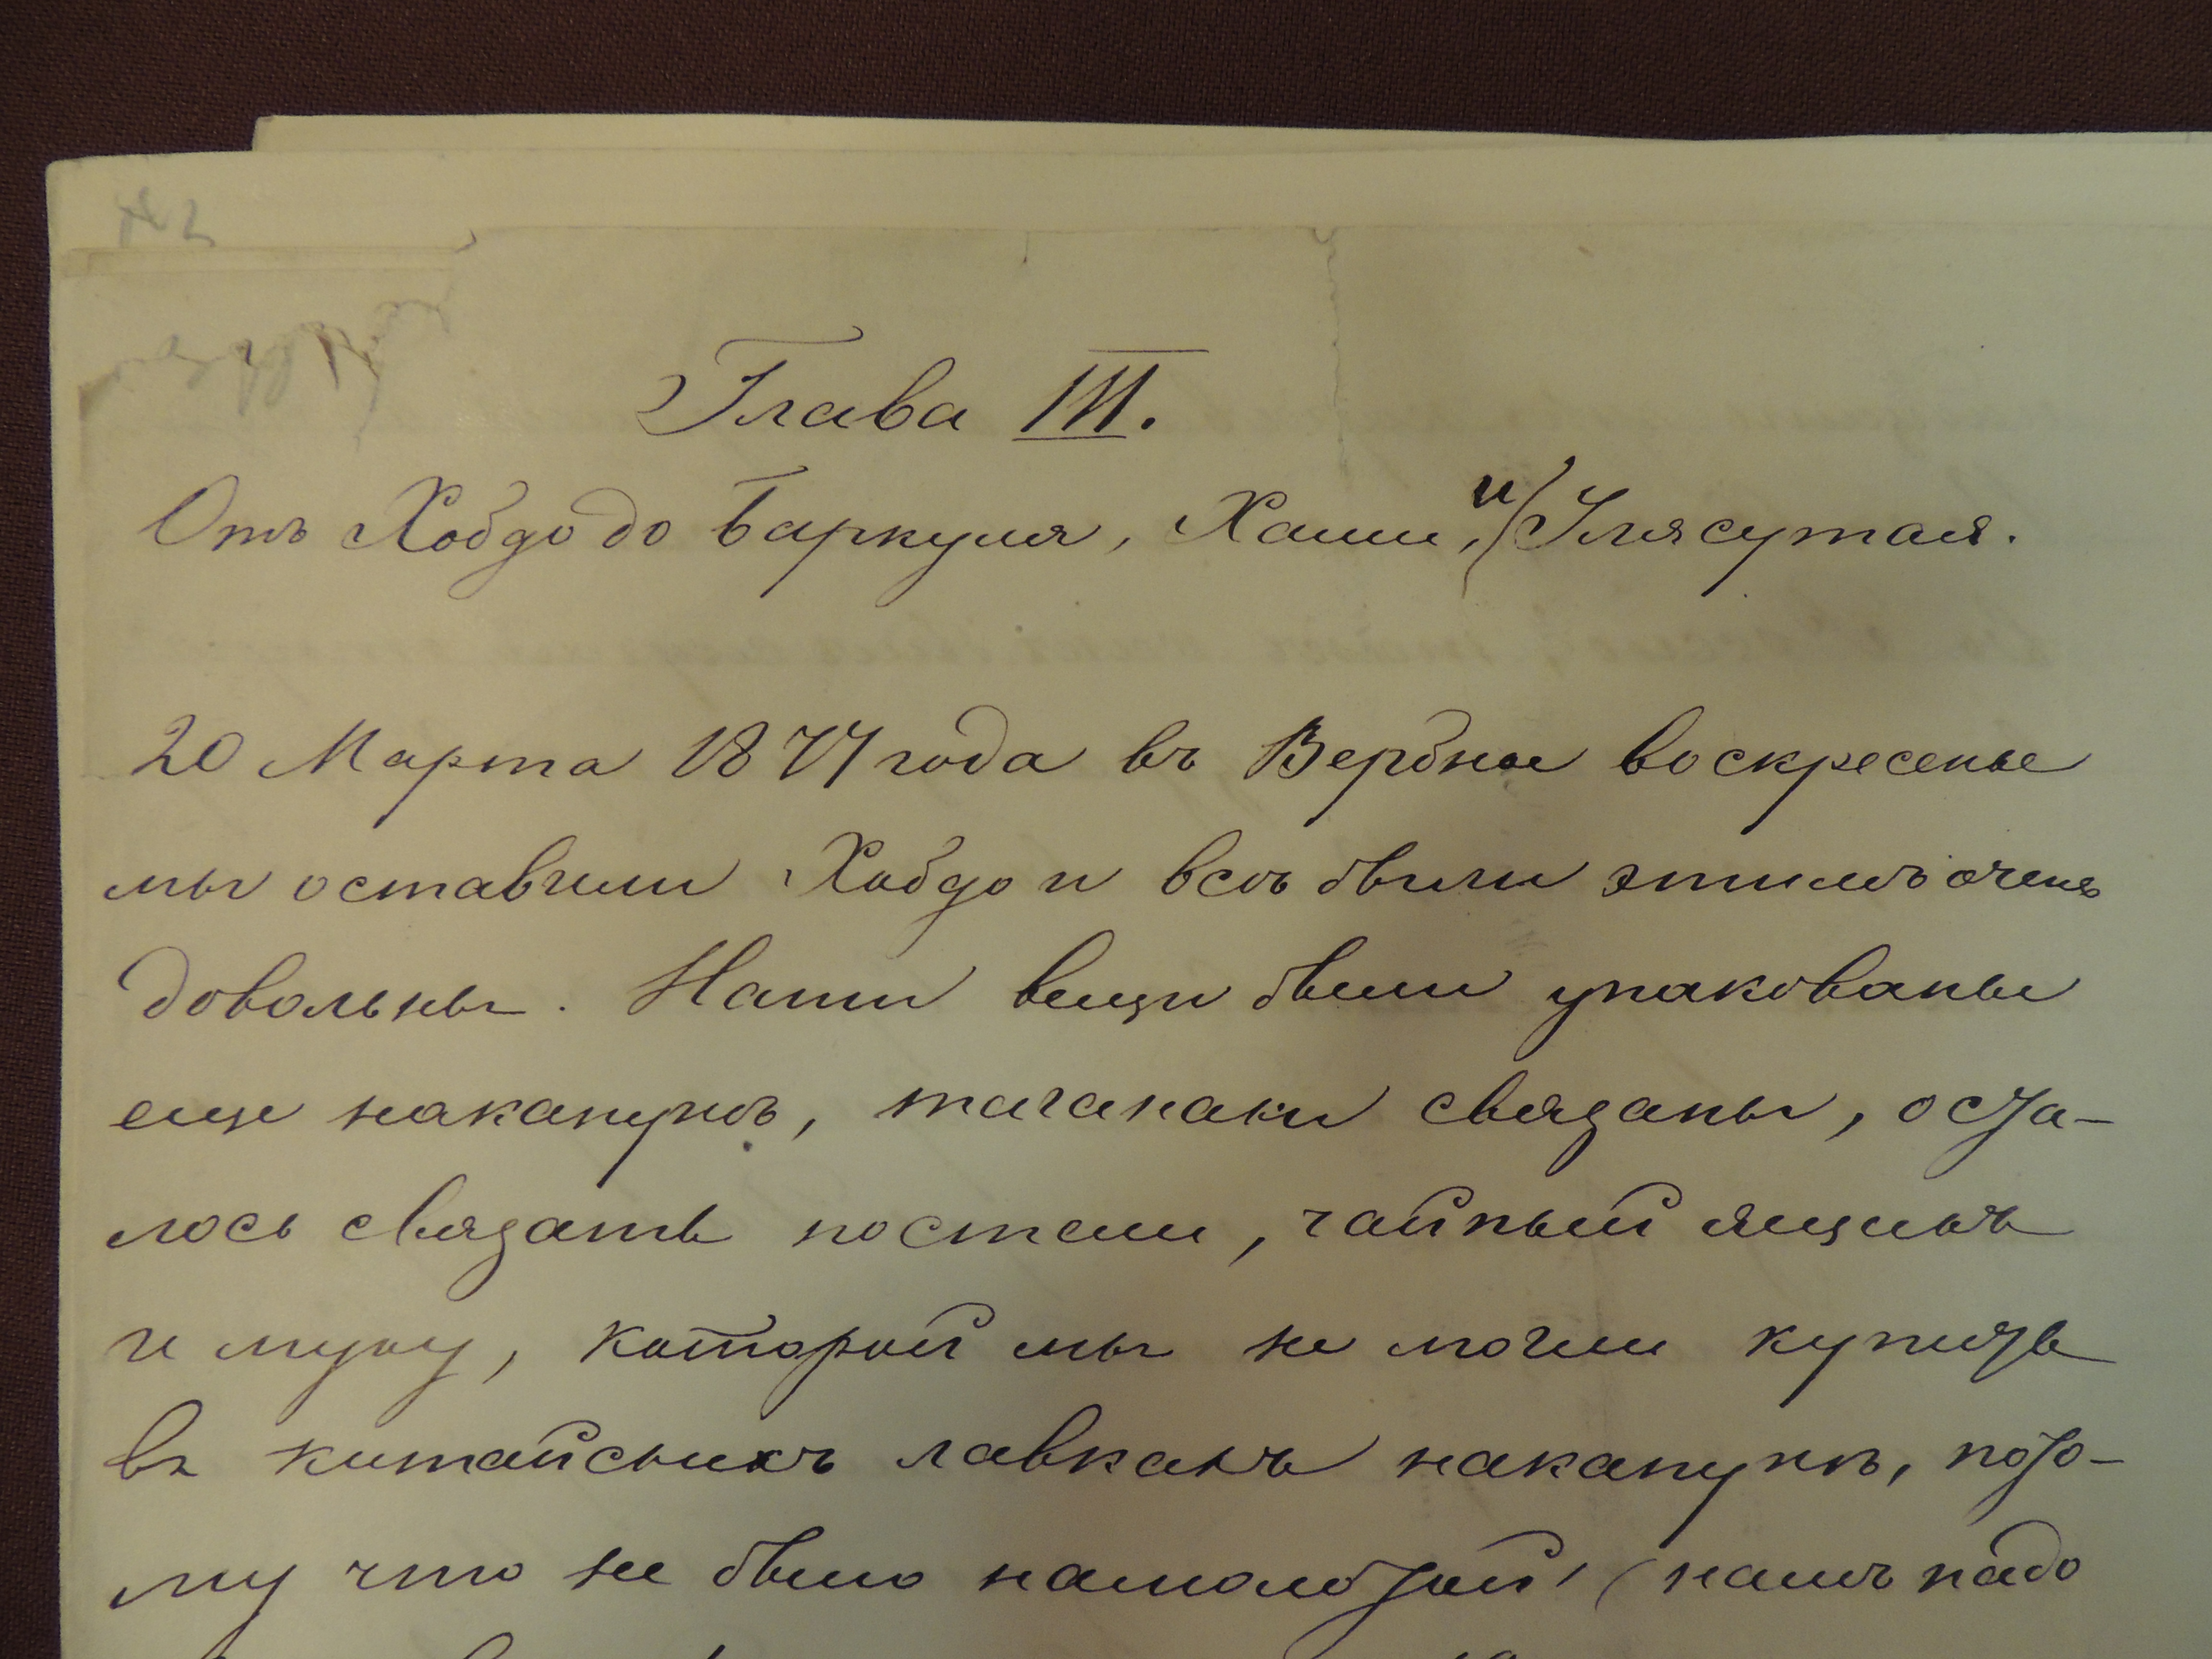 № 2
Глава III.
Отъ Хобдо до Баркуля, Хами, и Улясутая.
20 Марта 1877 года въ Вербное воскресенье
мы оставили Хобдо и всѣ были этимъ очень
довольны. Наши вещи были упакованы
еще наканунѣ, таганаки связаны, оста-
лось связать постели, чайный ящикъ
и муку, которой мы не могли купить
въ китайскихъ лавкахъ наканунѣ, пото-
му что не было намолотой (намъ надо